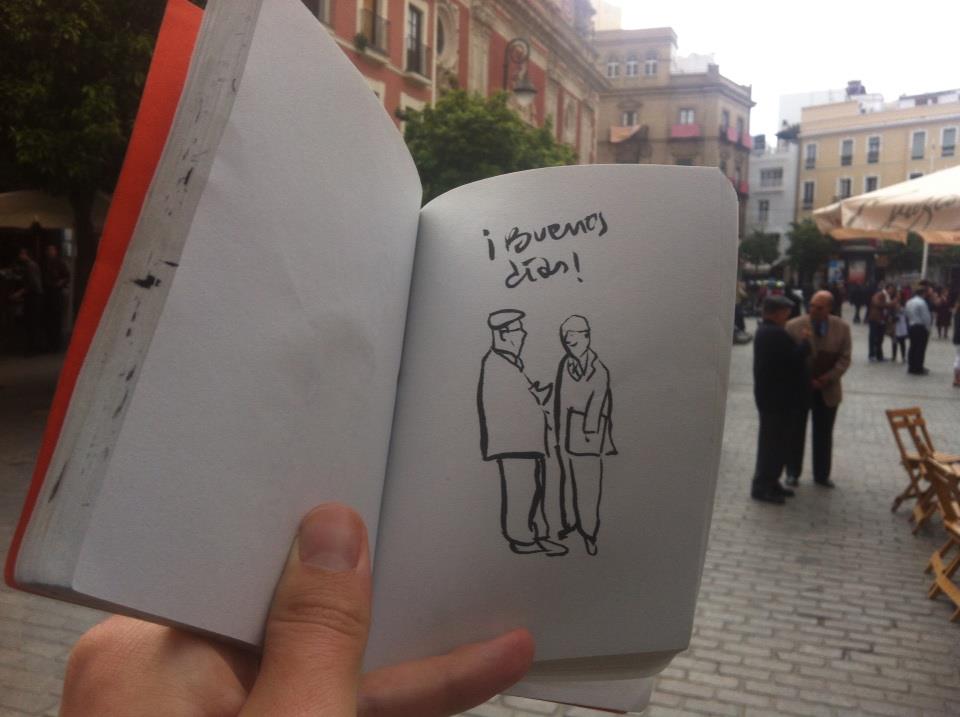 ¡Buenos
días!